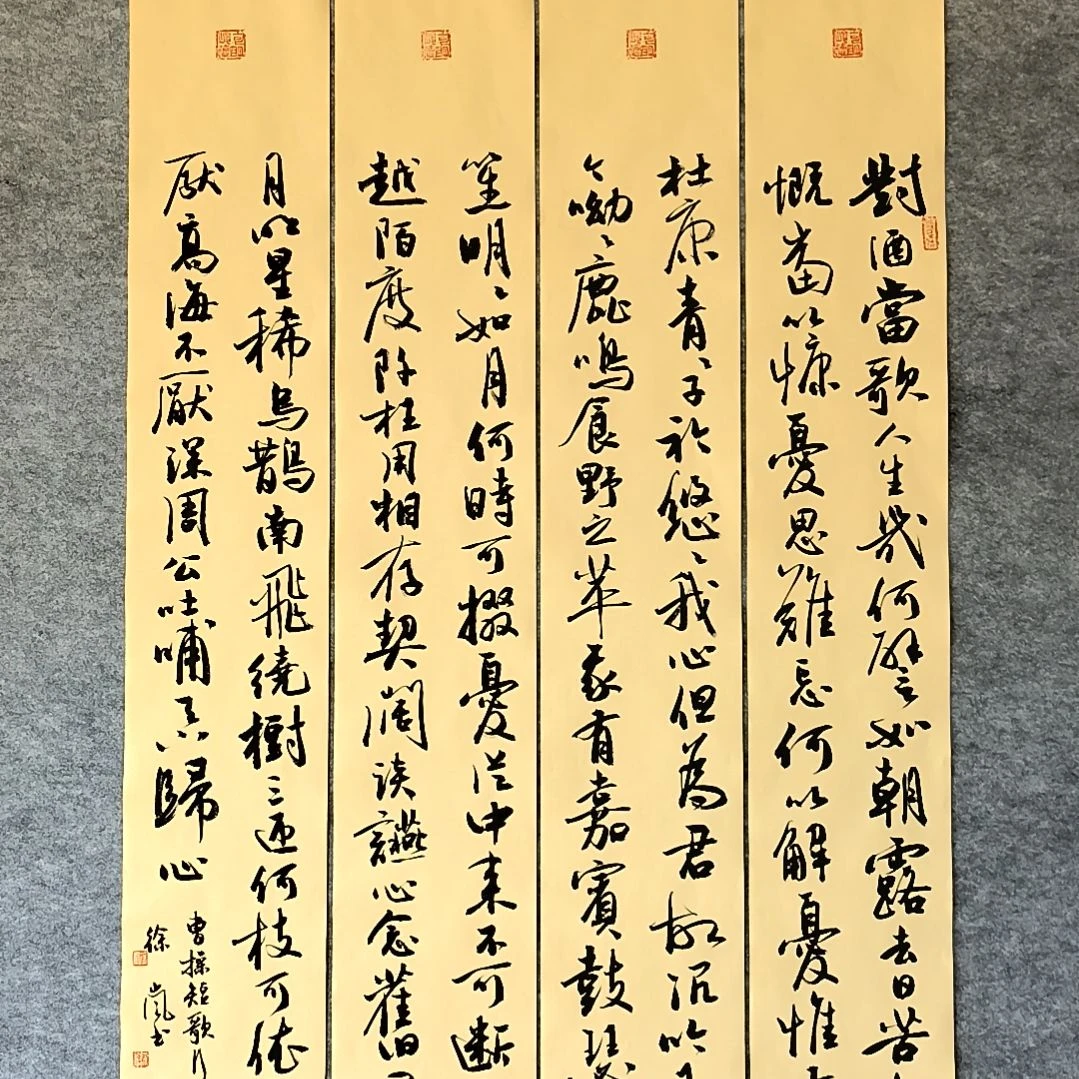 對酒當歌人生幾何譬如朝露去日苦
慨當以慷憂思難忘何以解憂惟
杜康青〻子衿悠〻我心但為君故沉吟
〻呦〻鹿鳴食野之苹我有嘉賓鼓瑟
笙明〻如月何時可掇憂從中來不可斷
越陌度阡枉用相存契闊談讌心念舊
月明星稀烏鵲南飛繞樹三匝何枝可依
厭高海不厭深周公吐哺天下歸心
曹操短歌行
徐嵐书